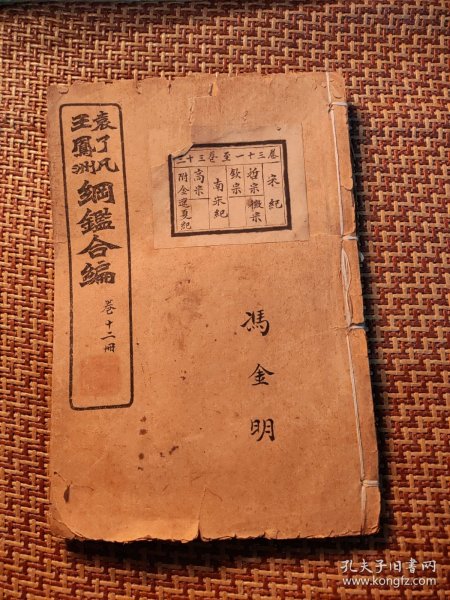 袁了凡
王鳳洲
綱鑑合編
卷十二冊
卷三十一至卷三十三
宋紀
哲宗徽宗
欽宗
南宋紀
高宗
附金遼夏紀
馮金明
孔夫子旧书网
www.kongfz.com